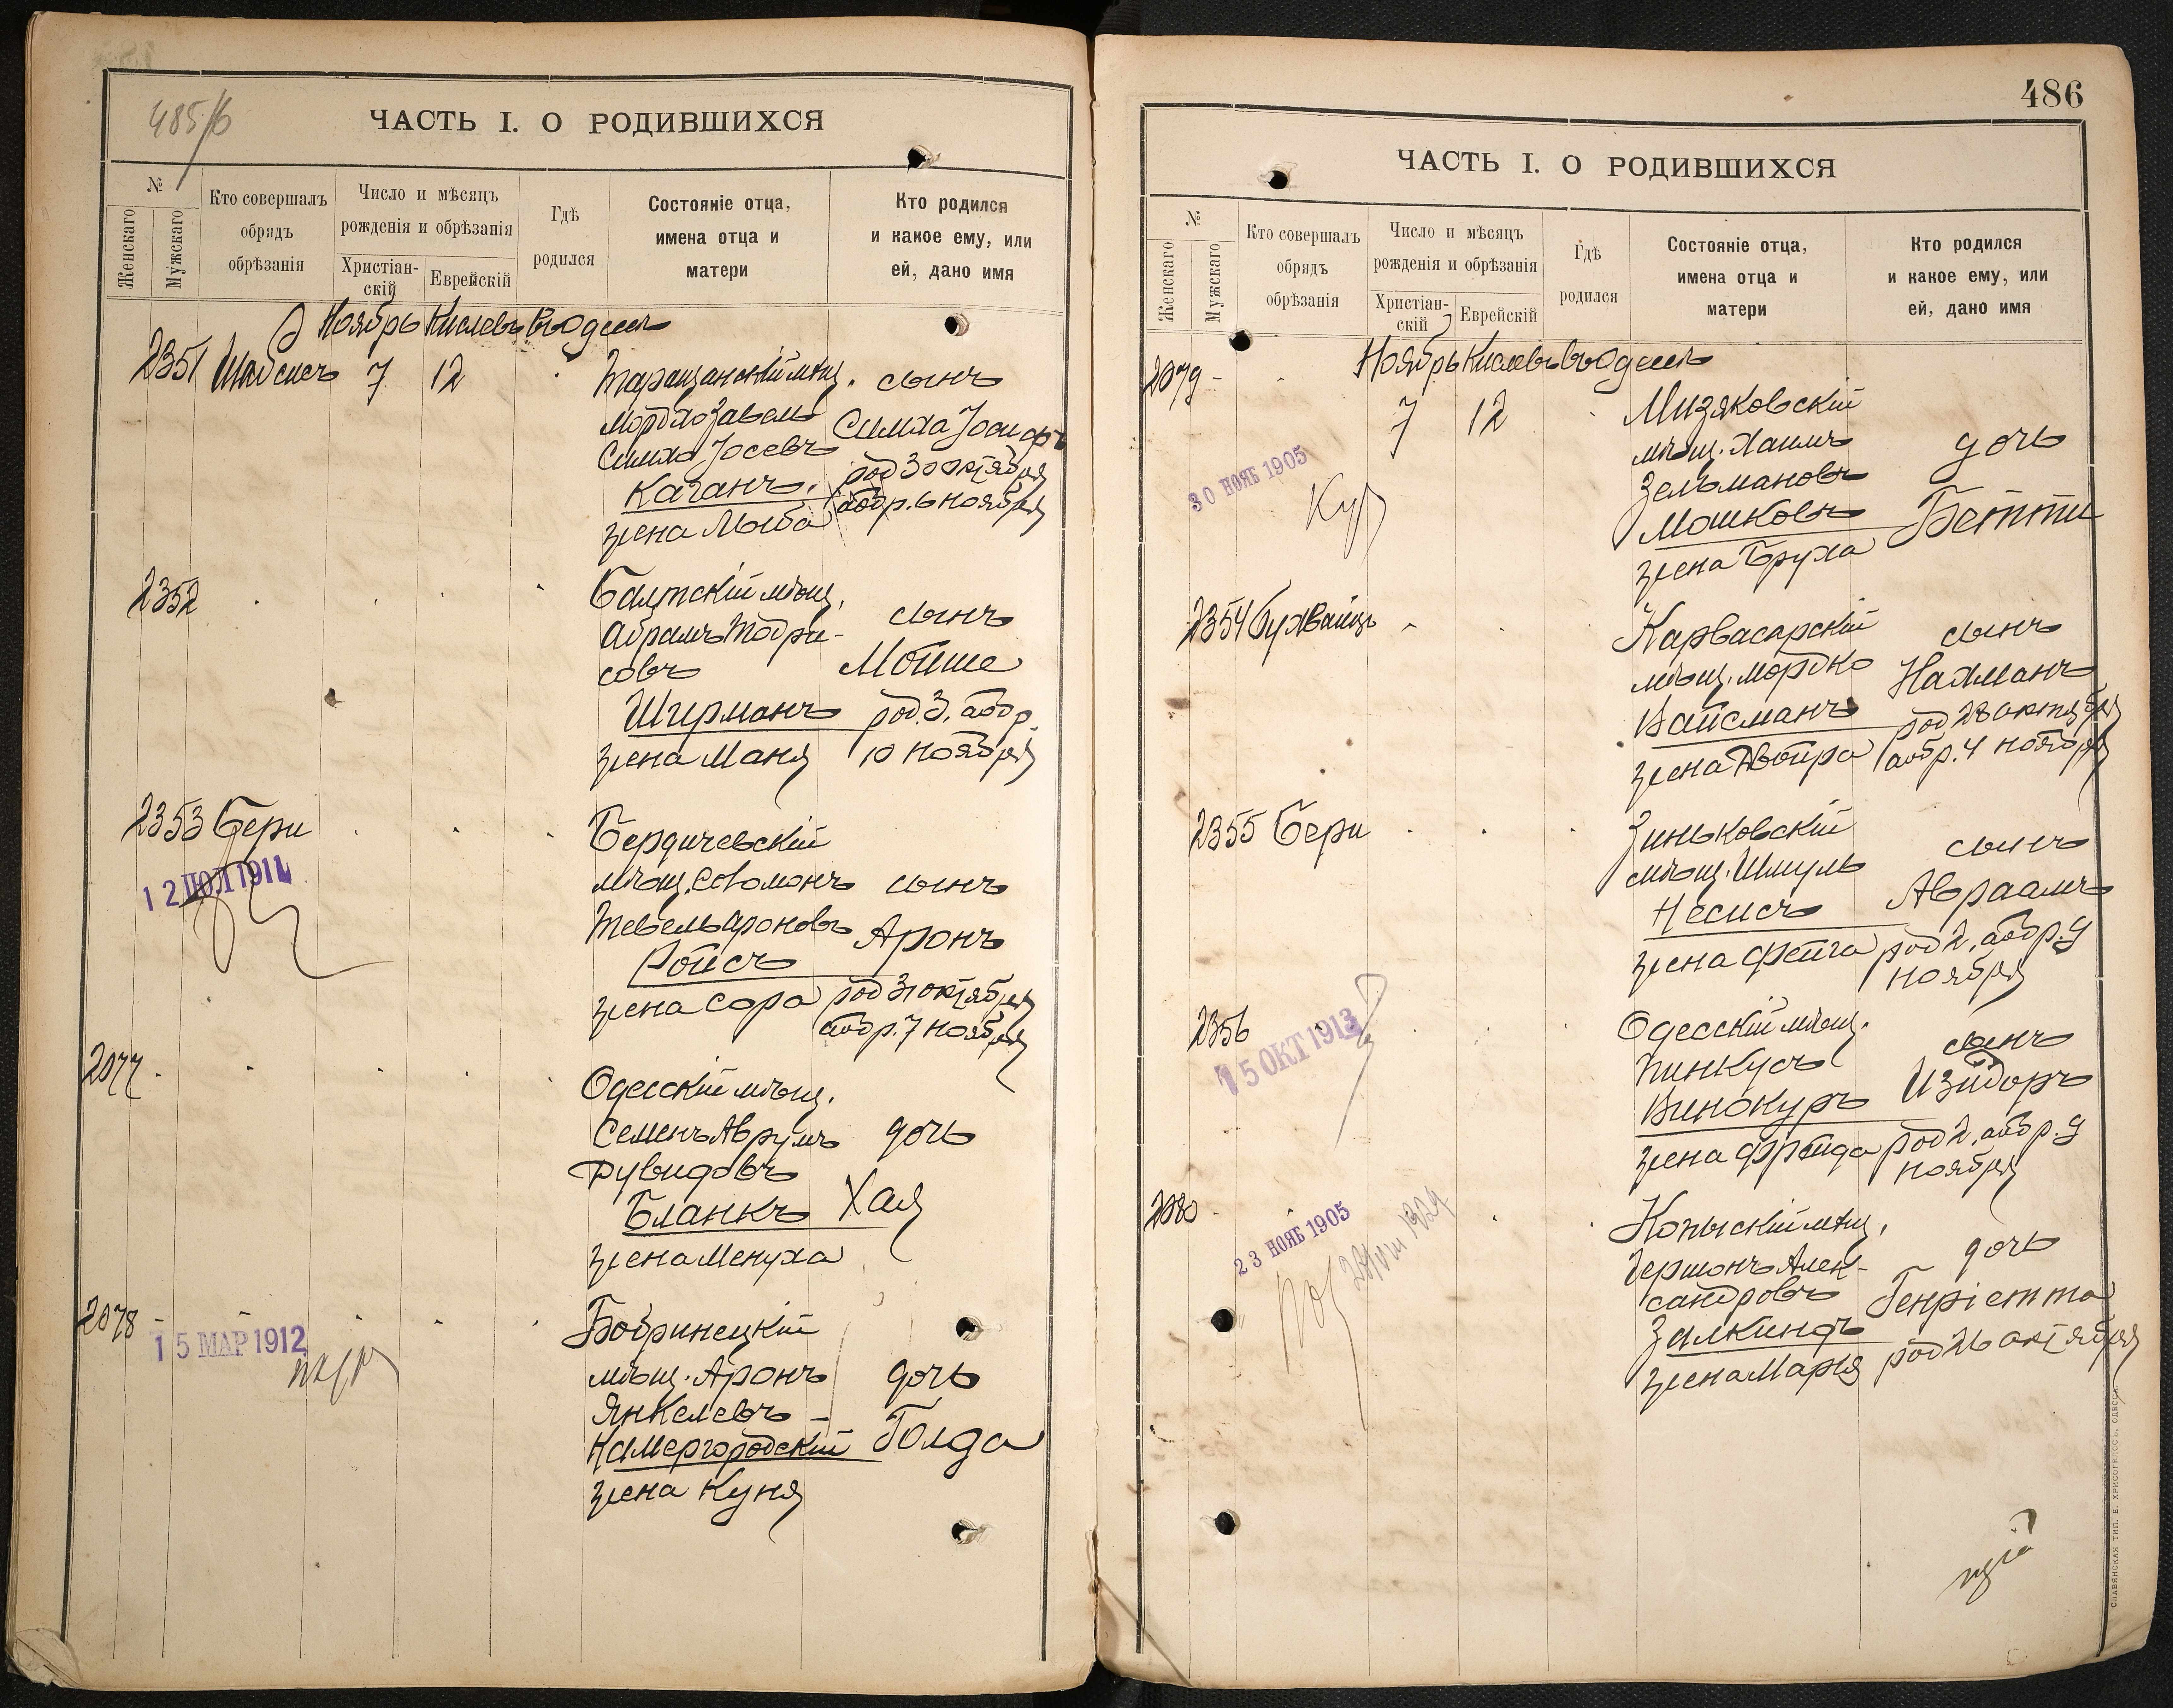 485/6
ЧАСТЬ I. О РОДИВШИХСЯ
№
Женскаго
Мужскаго
Кто совершалъ
обрядъ
обрѣзанія
Число и мѣсяцъ
рожденія и обрѣзанія
Христіан-
скій
Еврейскій
Гдѣ
родился
Состояніе отца,
имена отца и
матери
Кто родился
и какое ему, или
ей, дано имя
Ноябрь Кислевъ въ Одессѣ
2351 Шайсисъ 7 12 Таращанскій мѣщ. сынъ
Мордко Завель Симха Іосифъ
Симха Іосевъ род 30 октября
Каганъ. обр. 6 ноября
жена Люба
2352 Балтскій мѣщ.
Абрамъ Тодри- сынъ
совъ Мойше
Ширманъ род. 3, обр.
жена Маня 10 ноября
2353 Бери Бердичевскій
12 ІЮЛ 1911
мѣщ. Соломонъ сынъ
Тевель Ароновъ Аронъ
Ройсъ
жена Сора род 31 октября
обр. 7 ноября
2077 Одесскій мѣщ.
Семенъ Аврумъ дочь
Рувидовъ
Бланкъ Хая
жена Менуха
2078 Бобринецкій
15 МАР 1912
мѣщ. Аронъ дочь
Янкелевъ -
Камергородскій Голда
жена Куня
486
ЧАСТЬ I. О РОДИВШИХСЯ
№
Женскаго
Мужскаго
Кто совершалъ
обрядъ
обрѣзанія
Число и мѣсяцъ
рожденія и обрѣзанія
Христіан-
скій
Еврейскій
Гдѣ
родился
Состояніе отца,
имена отца и
матери
Кто родился
и какое ему, или
ей, дано имя
Ноябрь Кислевъ въ Одессѣ
2079 7 12 Мизяковскій
мѣщ. Хаимъ дочь
30 НОЯБ 1905
Зельмановъ
Мошковъ Бетти
жена Бруха
2354 Бухвайцъ Карвасарскій сынъ
мѣщ. Мордко Нахманъ
Вайсманъ род 28 октября
жена Двойра обр. 4 ноября
2355 Бери Зиньковскій сынъ
мѣщ. Шмуль Авраамъ
Несисъ
жена Фейга род 2, обр. 9
ноября
2356 Одесскій мѣщ. сынъ
15 ОКТ 1913
Пинкусъ Изидоръ
Винокуръ
жена Фрейда род 2, обр. 9
ноября
2080 Копыскій мѣщ.
23 НОЯБ 1905
Гершонъ Алек- дочь
сандровъ Генріетта
Залкиндъ
жена Марья род 26 октября
СЛАВЯНСКАЯ ТИП. Е. ХРИСОГЕЛОСЪ, ОДЕССА.